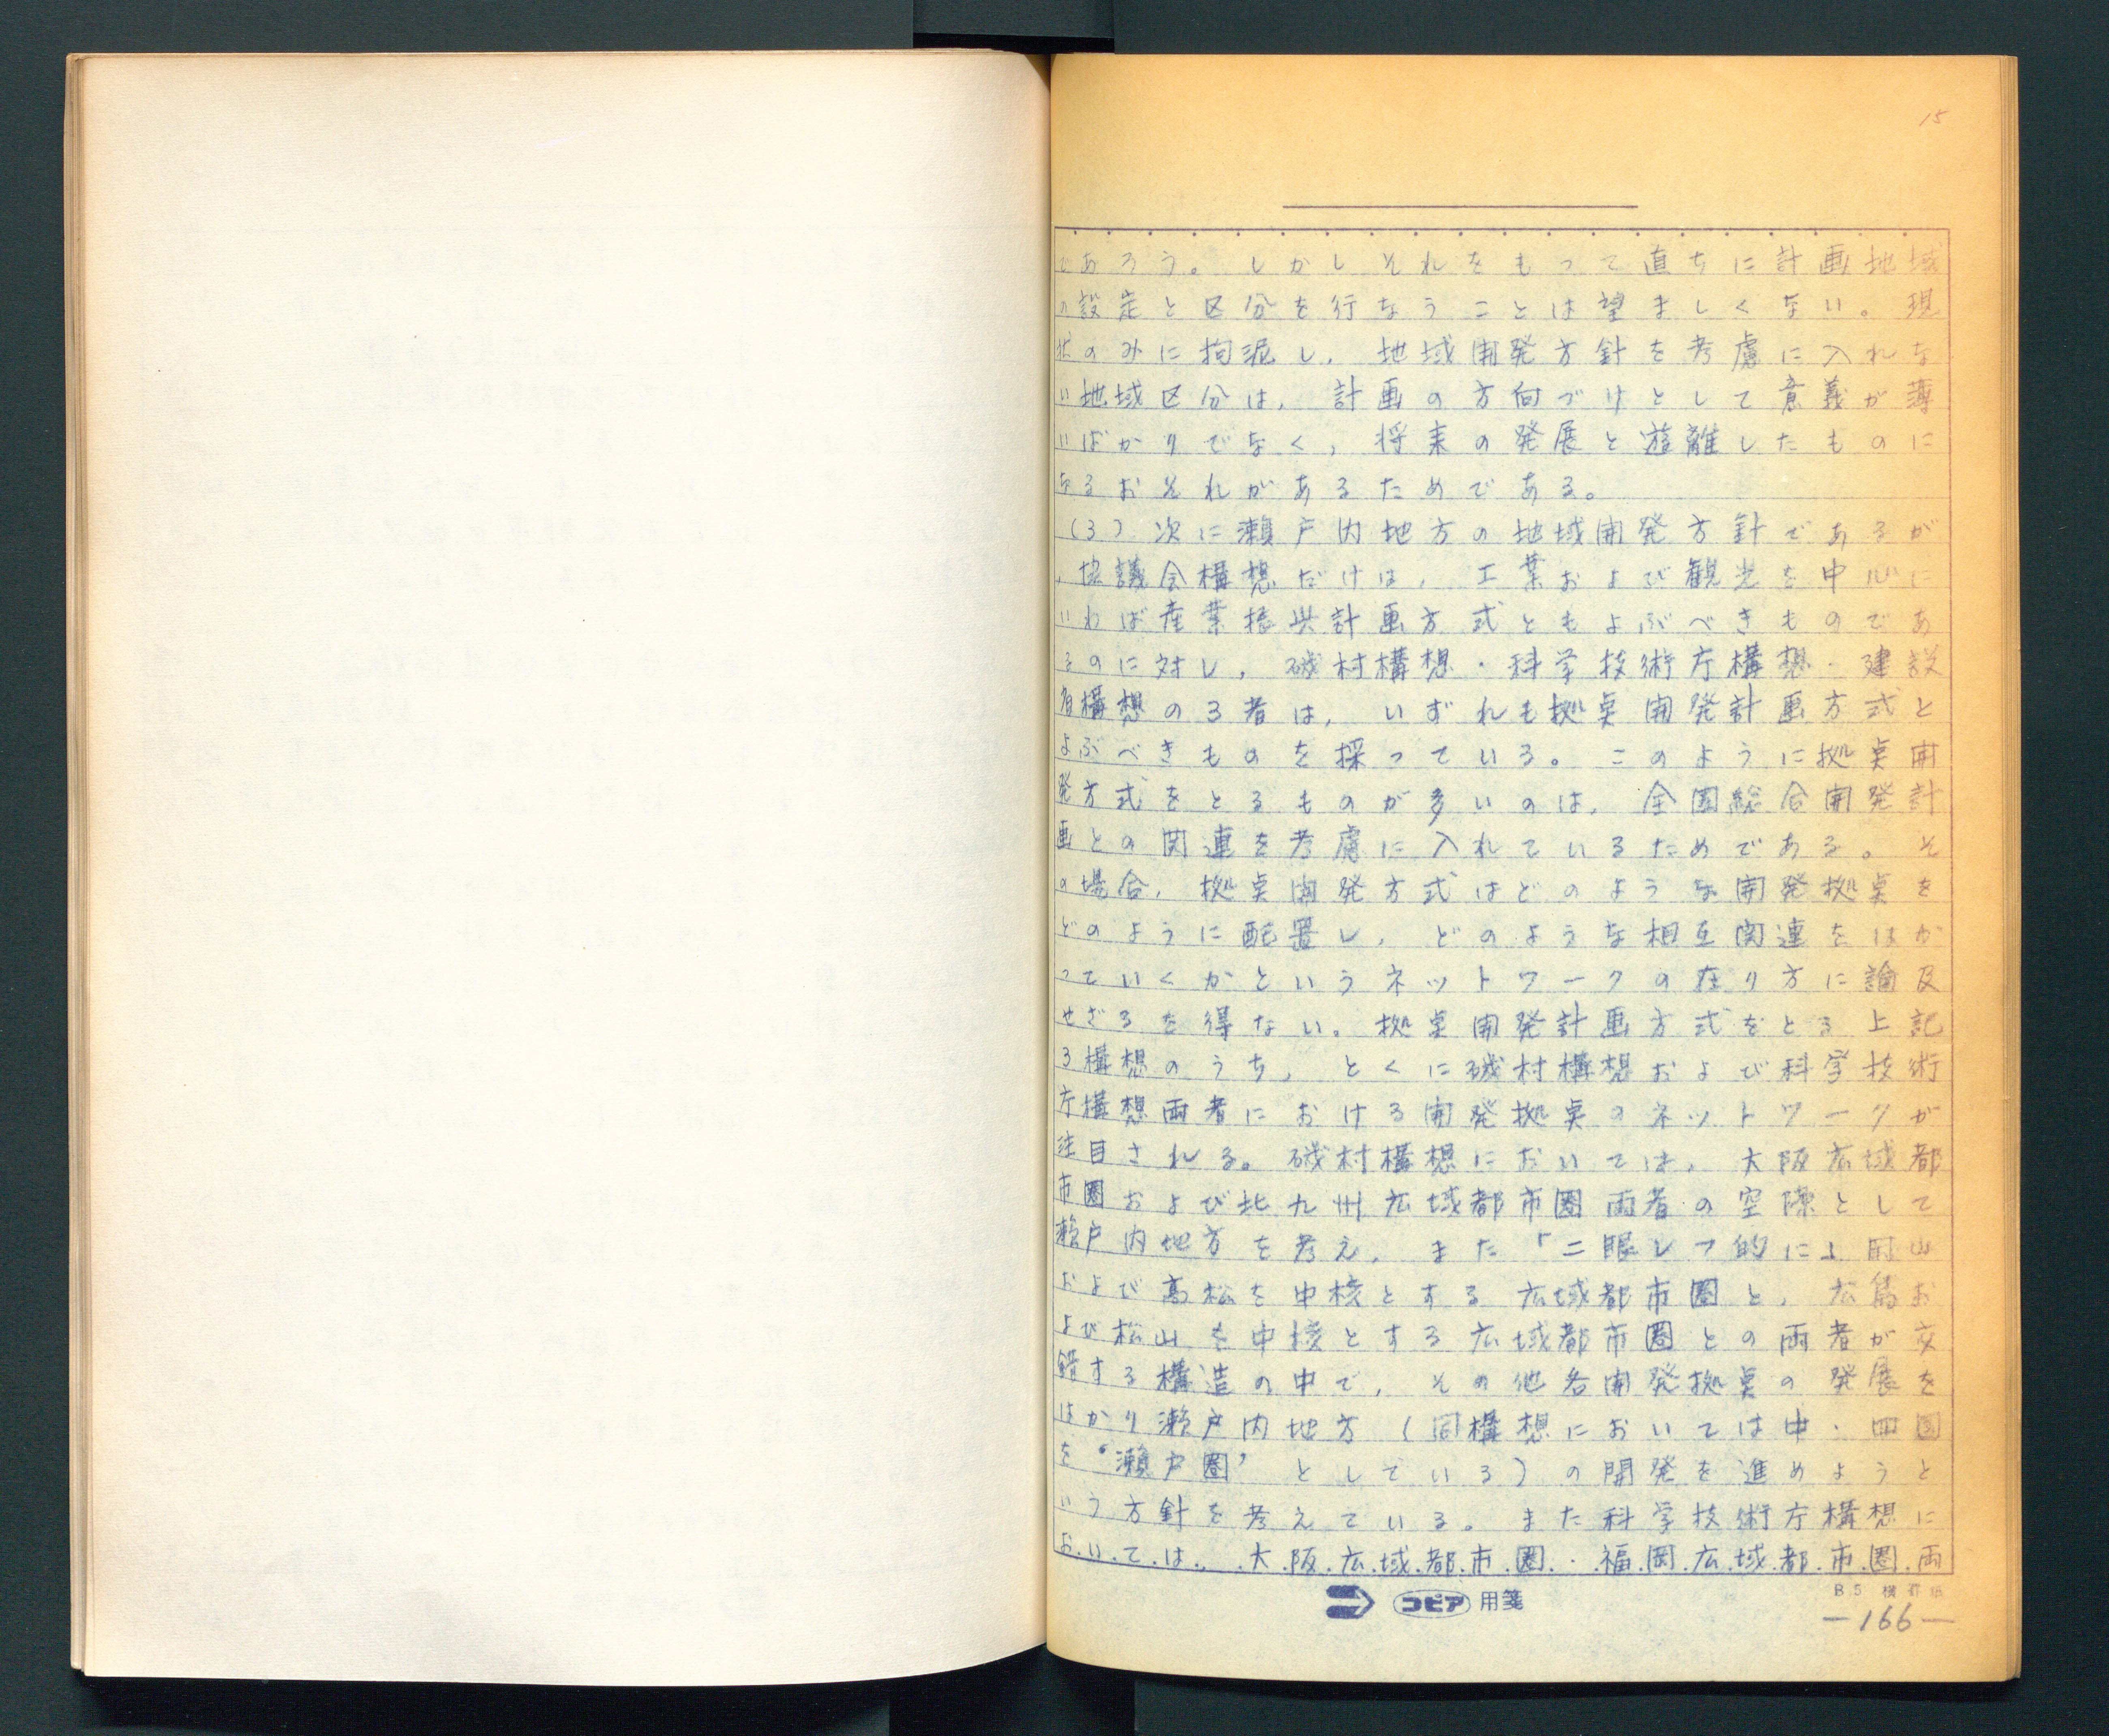 15
であろう。しかしそれをもって直ちに計画地域
の設定と区分を行なうことは望ましくない。現
状のみに拘泥し，地域開発方針を考慮に入れな
い地域区分は，計画の方向づけとして意義が薄
いばかりでなく，将来の発展と遊離したものに
なるおそれがあるためである。
(3) 次に瀬戸内地方の地域開発方針であるが
，協議会構想だけは，工業および観光を中心に
いわば産業振興計画方式ともよぶべきものであ
るのに対し，磯村構想・科学技術庁構想・建設
省構想の3者は，いずれも拠点開発計画方式と
よぶべきものを採っている。このように拠点開
発方式をとるものが多いのは，全国総合開発計
画との関連を考慮に入れているためである。そ
の場合，拠点開発方式はどのような開発拠点を
どのように配置し，どのような相互関連をはか
っていくかというネットワークの在り方に論及
せざるを得ない。拠点開発計画方式をとる上記
3構想のうち，とくに磯村構想および科学技術
庁構想両者における開発拠点のネットワークが
注目される。磯村構想においては，大阪広域都
市圏および北九州広域都市圏両者の空隙として
瀬戸内地方を考え，また「二眼レフ的に」岡山
および高松を中核とする広域都市圏と，広島お
よび松山を中核とする広域都市圏との両者が交
錯する構造の中で，その他各開発拠点の発展を
はかり瀬戸内地方（同構想においては中・四国
を‘瀬戸圏’としている）の開発を進めようと
いう方針を考えている。また科学技術庁構想に
おいては，大阪広域都市圏・福岡広域都市圏両
コピア 用箋
B5 横罫紙
—166—